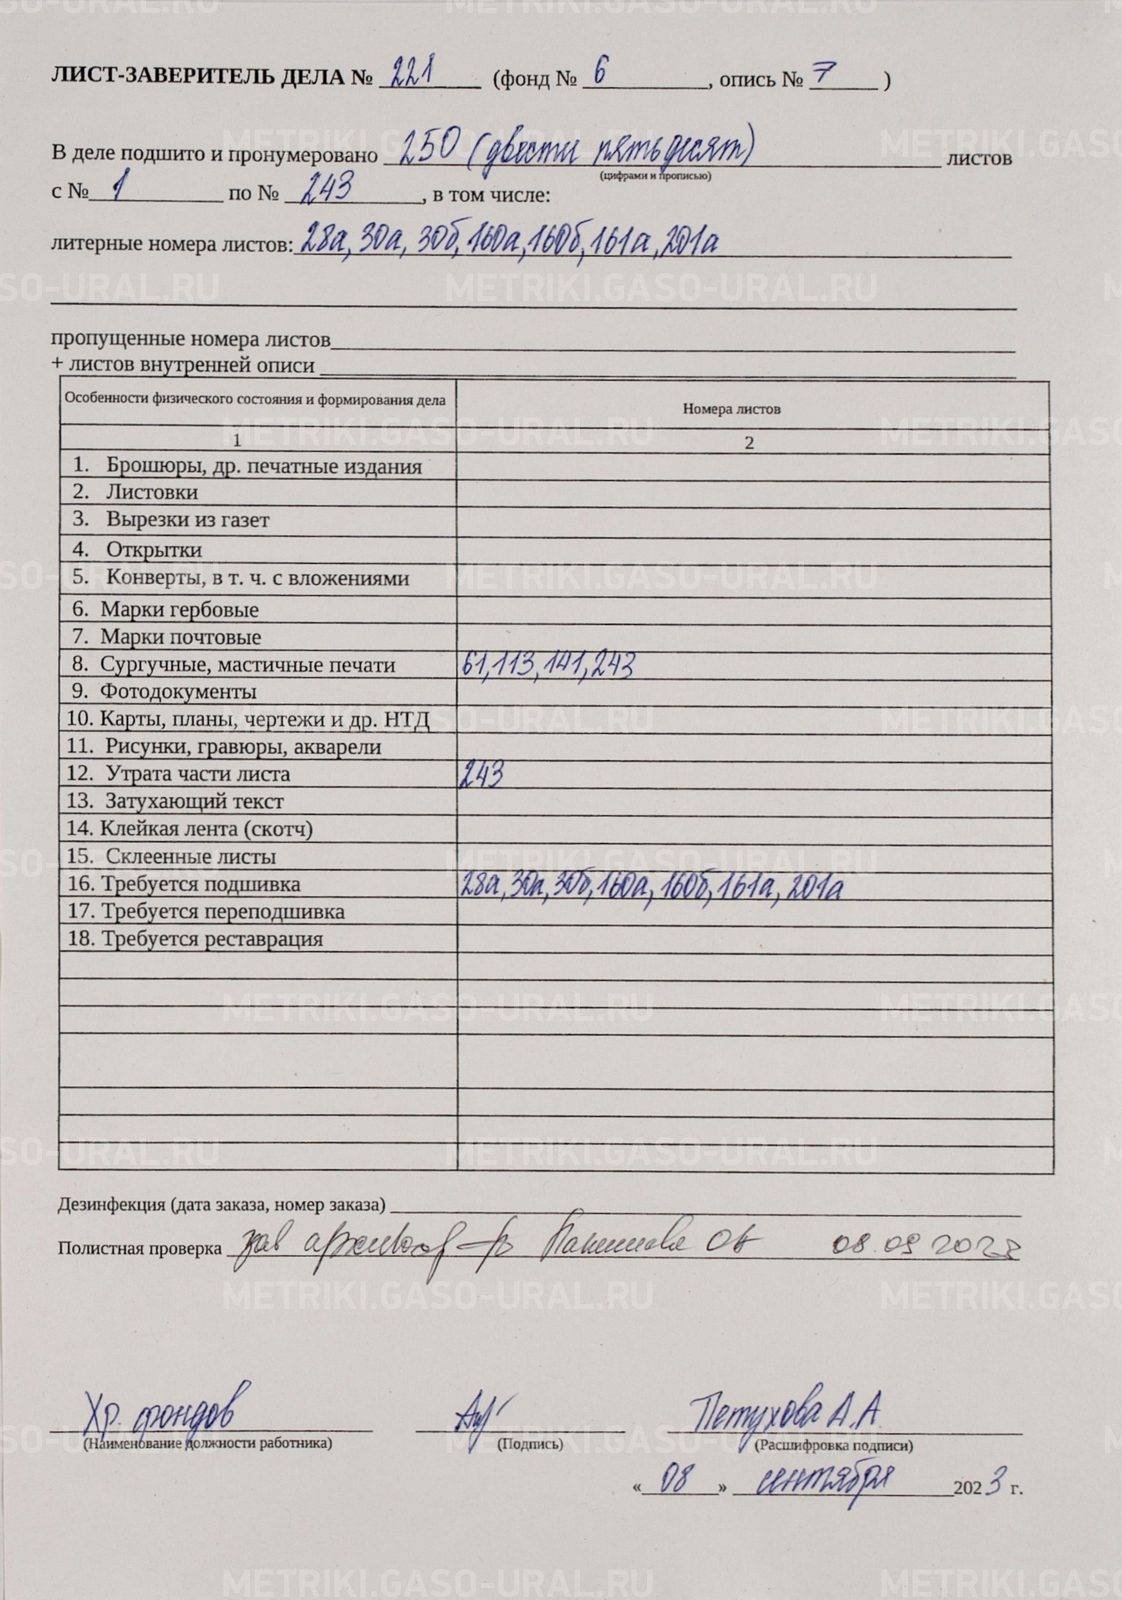 ЛИСТ-ЗАВЕРИТЕЛЬ ДЕЛА № 221 (фонд № 6, опись № 7)
В деле подшито и пронумеровано 250 (двести пятьдесят) листов
(цифрами и прописью)
с № 1 по № 243, в том числе:
литерные номера листов: 28а, 30а, 30б, 160а, 160б, 161а, 201а
пропущенные номера листов
+ листов внутренней описи
Особенности физического состояния и формирования дела Номера листов
1 2
1. Брошюры, др. печатные издания
2. Листовки
3. Вырезки из газет
4. Открытки
5. Конверты, в т. ч. с вложениями
6. Марки гербовые
7. Марки почтовые
8. Сургучные, мастичные печати 61, 113, 141, 243
9. Фотодокументы
10. Карты, планы, чертежи и др. НТД
11. Рисунки, гравюры, акварели
12. Утрата части листа 243
13. Затухающий текст
14. Клейкая лента (скотч)
15. Склеенные листы
16. Требуется подшивка 28а, 30а, 30б, 160а, 160б, 161а, 201а
17. Требуется переподшивка
18. Требуется реставрация
Дезинфекция (дата заказа, номер заказа)
Полистная проверка зав 08.09.2023
Хр. фондов Петухова А.А.
(Наименование должности работника) (Подпись) (Расшифровка подписи)
« 08 » сентября 2023 г.
METRIKI.GASO-URAL.RU